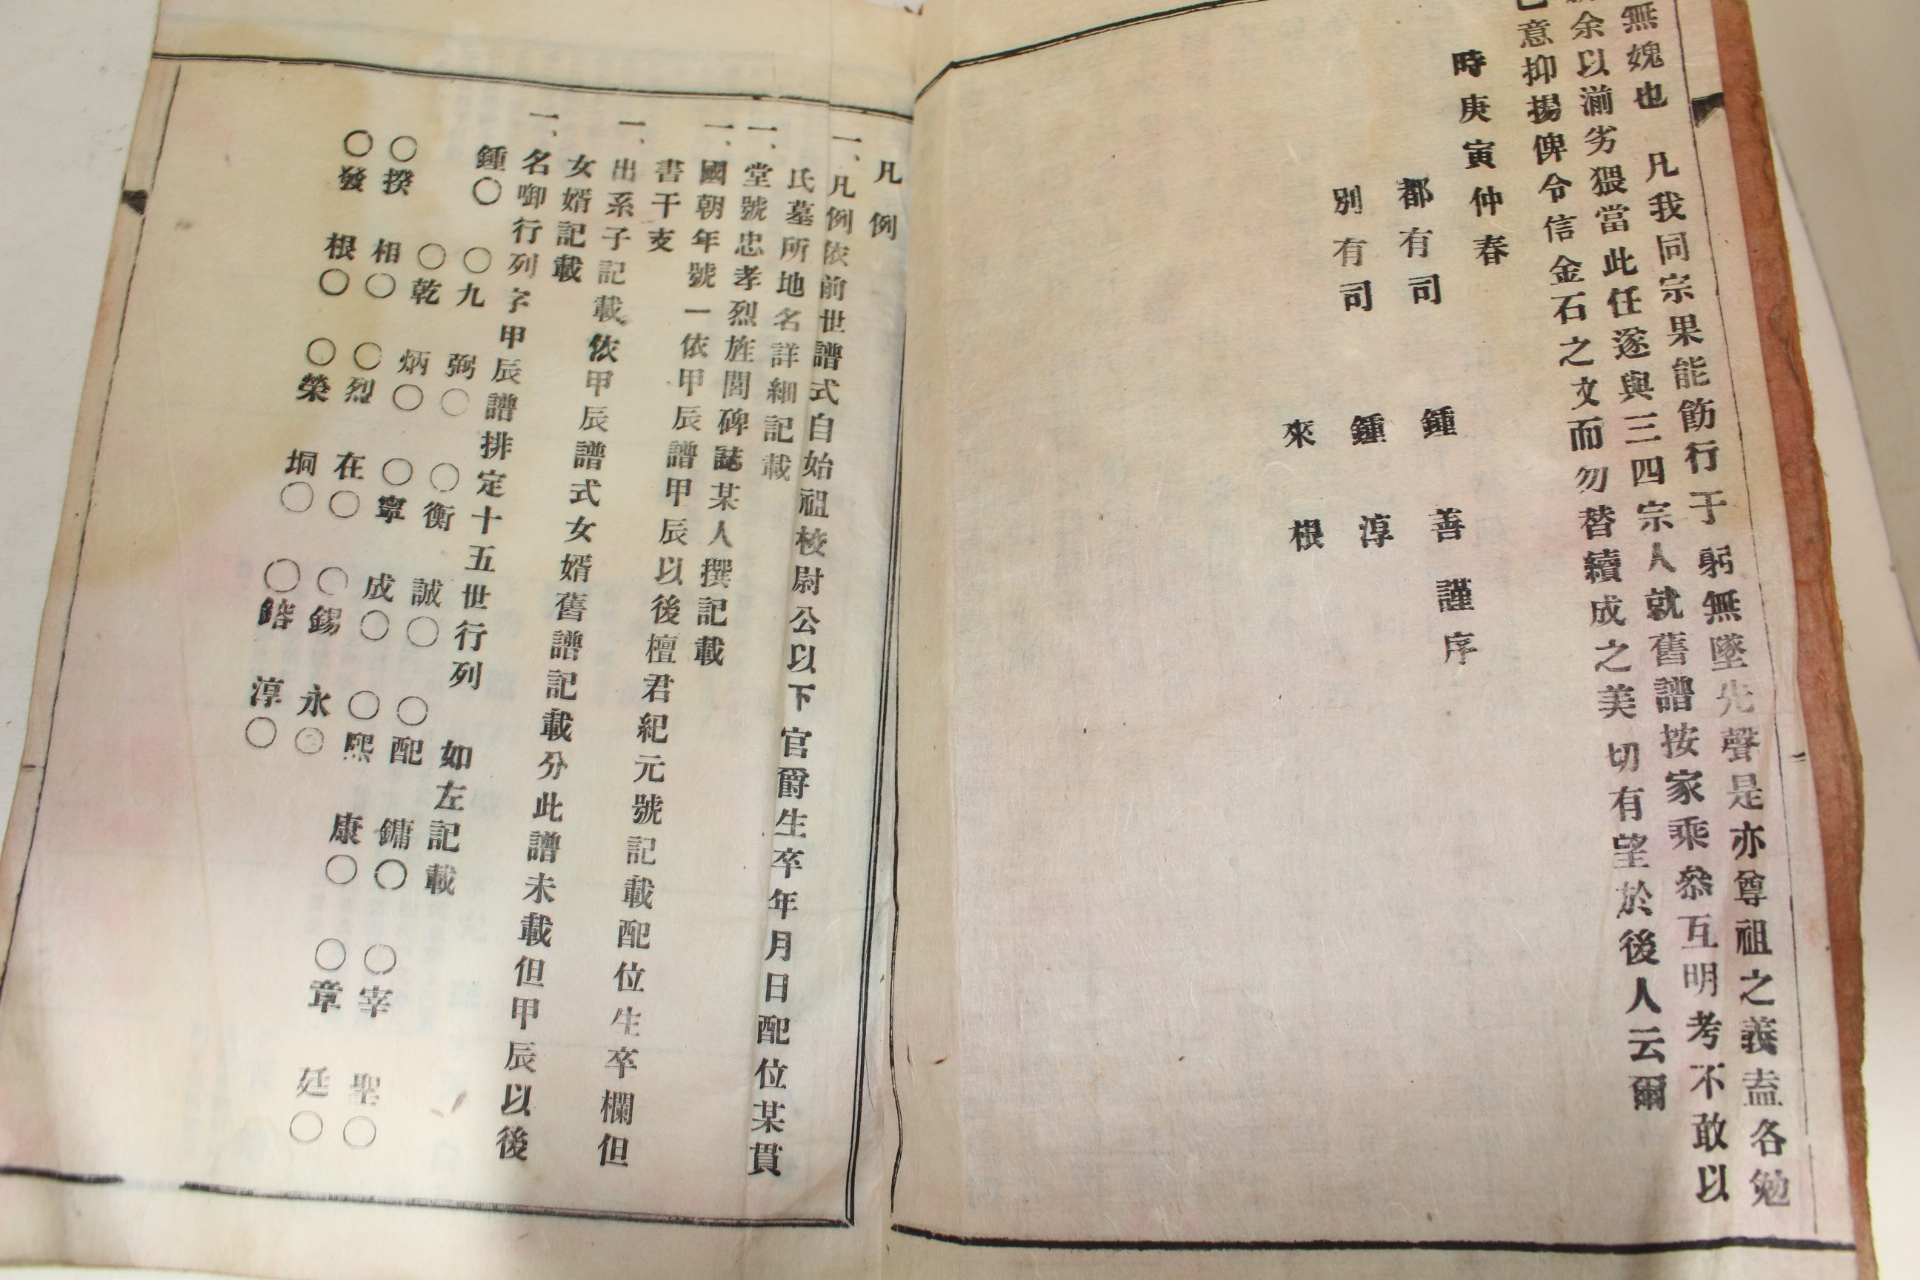 無愧也 凡我同宗果能飭行于躬無墜先聲是亦尊祖之義盍各勉
余以湔劣猥當此任遂與三四宗人就舊譜按家乘叅互明考不敢以
己意抑揚俾令信金石之文而勿替續成之美 切有望於後人云爾
時庚寅仲春
都有司 鍾善謹序
別有司 鍾淳
來根
凡例
一、凡例依前世譜式自始祖校尉公以下官爵生卒年月日配位某貫
氏墓所地名詳細記載
一、堂號忠孝烈旌閭碑誌某人撰記載
一、國朝年號一依甲辰譜甲辰以後檀君紀元號記載配位生卒欄但
書干支
一、出系子記載依甲辰譜式女婿舊譜記載分此譜未載但甲辰以後
女婿記載
一、名啣行列字甲辰譜排定十五世行列 如左記載
鍾〇 〇九 弼〇 〇衡 誠〇 〇配 鏞〇 〇宰 聖〇
〇揆 〇乾 炳〇 〇寧 成〇 〇熙 康〇 〇章 廷〇
相〇 〇烈 在〇 〇錫 永〇
〇發 根〇 〇榮 坰〇 〇鎔 淳〇